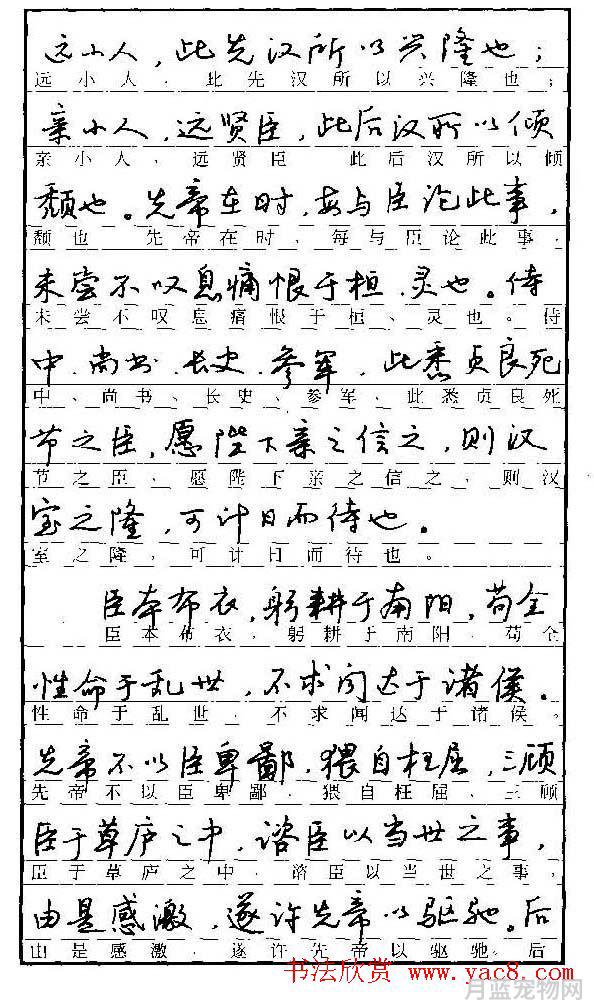 远小人，此先汉所以兴隆也；
远小人，此先汉所以兴隆也；
亲小人，远贤臣，此后汉所以倾
亲小人，远贤臣 此后汉所以倾
颓也。先帝在时，每与臣论此事，
颓也 先帝在时，每与臣论此事，
未尝不叹息痛恨于桓、灵也。侍
未尝不叹息痛恨于桓、灵也。侍
中、尚书、长史、参军，此悉贞良死
中、尚书、长史、参军、此悉贞良死
节之臣，愿陛下亲之信之，则汉
节之臣，愿陛下亲之信之，则汉
室之隆，可计日而待也。
室之隆，可计日而待也。
臣本布衣，躬耕于南阳，苟全
臣本布衣，躬耕于南阳，苟全
性命于乱世，不求闻达于诸侯。
性命于乱世，不求闻达于诸侯。
先帝不以臣卑鄙，猥自枉屈，三顾
先帝不以臣卑鄙，猥自枉屈、三顾
臣于草庐之中，谘臣以当世之事，
臣于草庐之中，谘臣以当世之事，
由是感激，遂许先帝以驱驰。后
由是感激，遂许先帝以驱驰。后
书法欣赏 www.yac8.com
月蓝宠物网